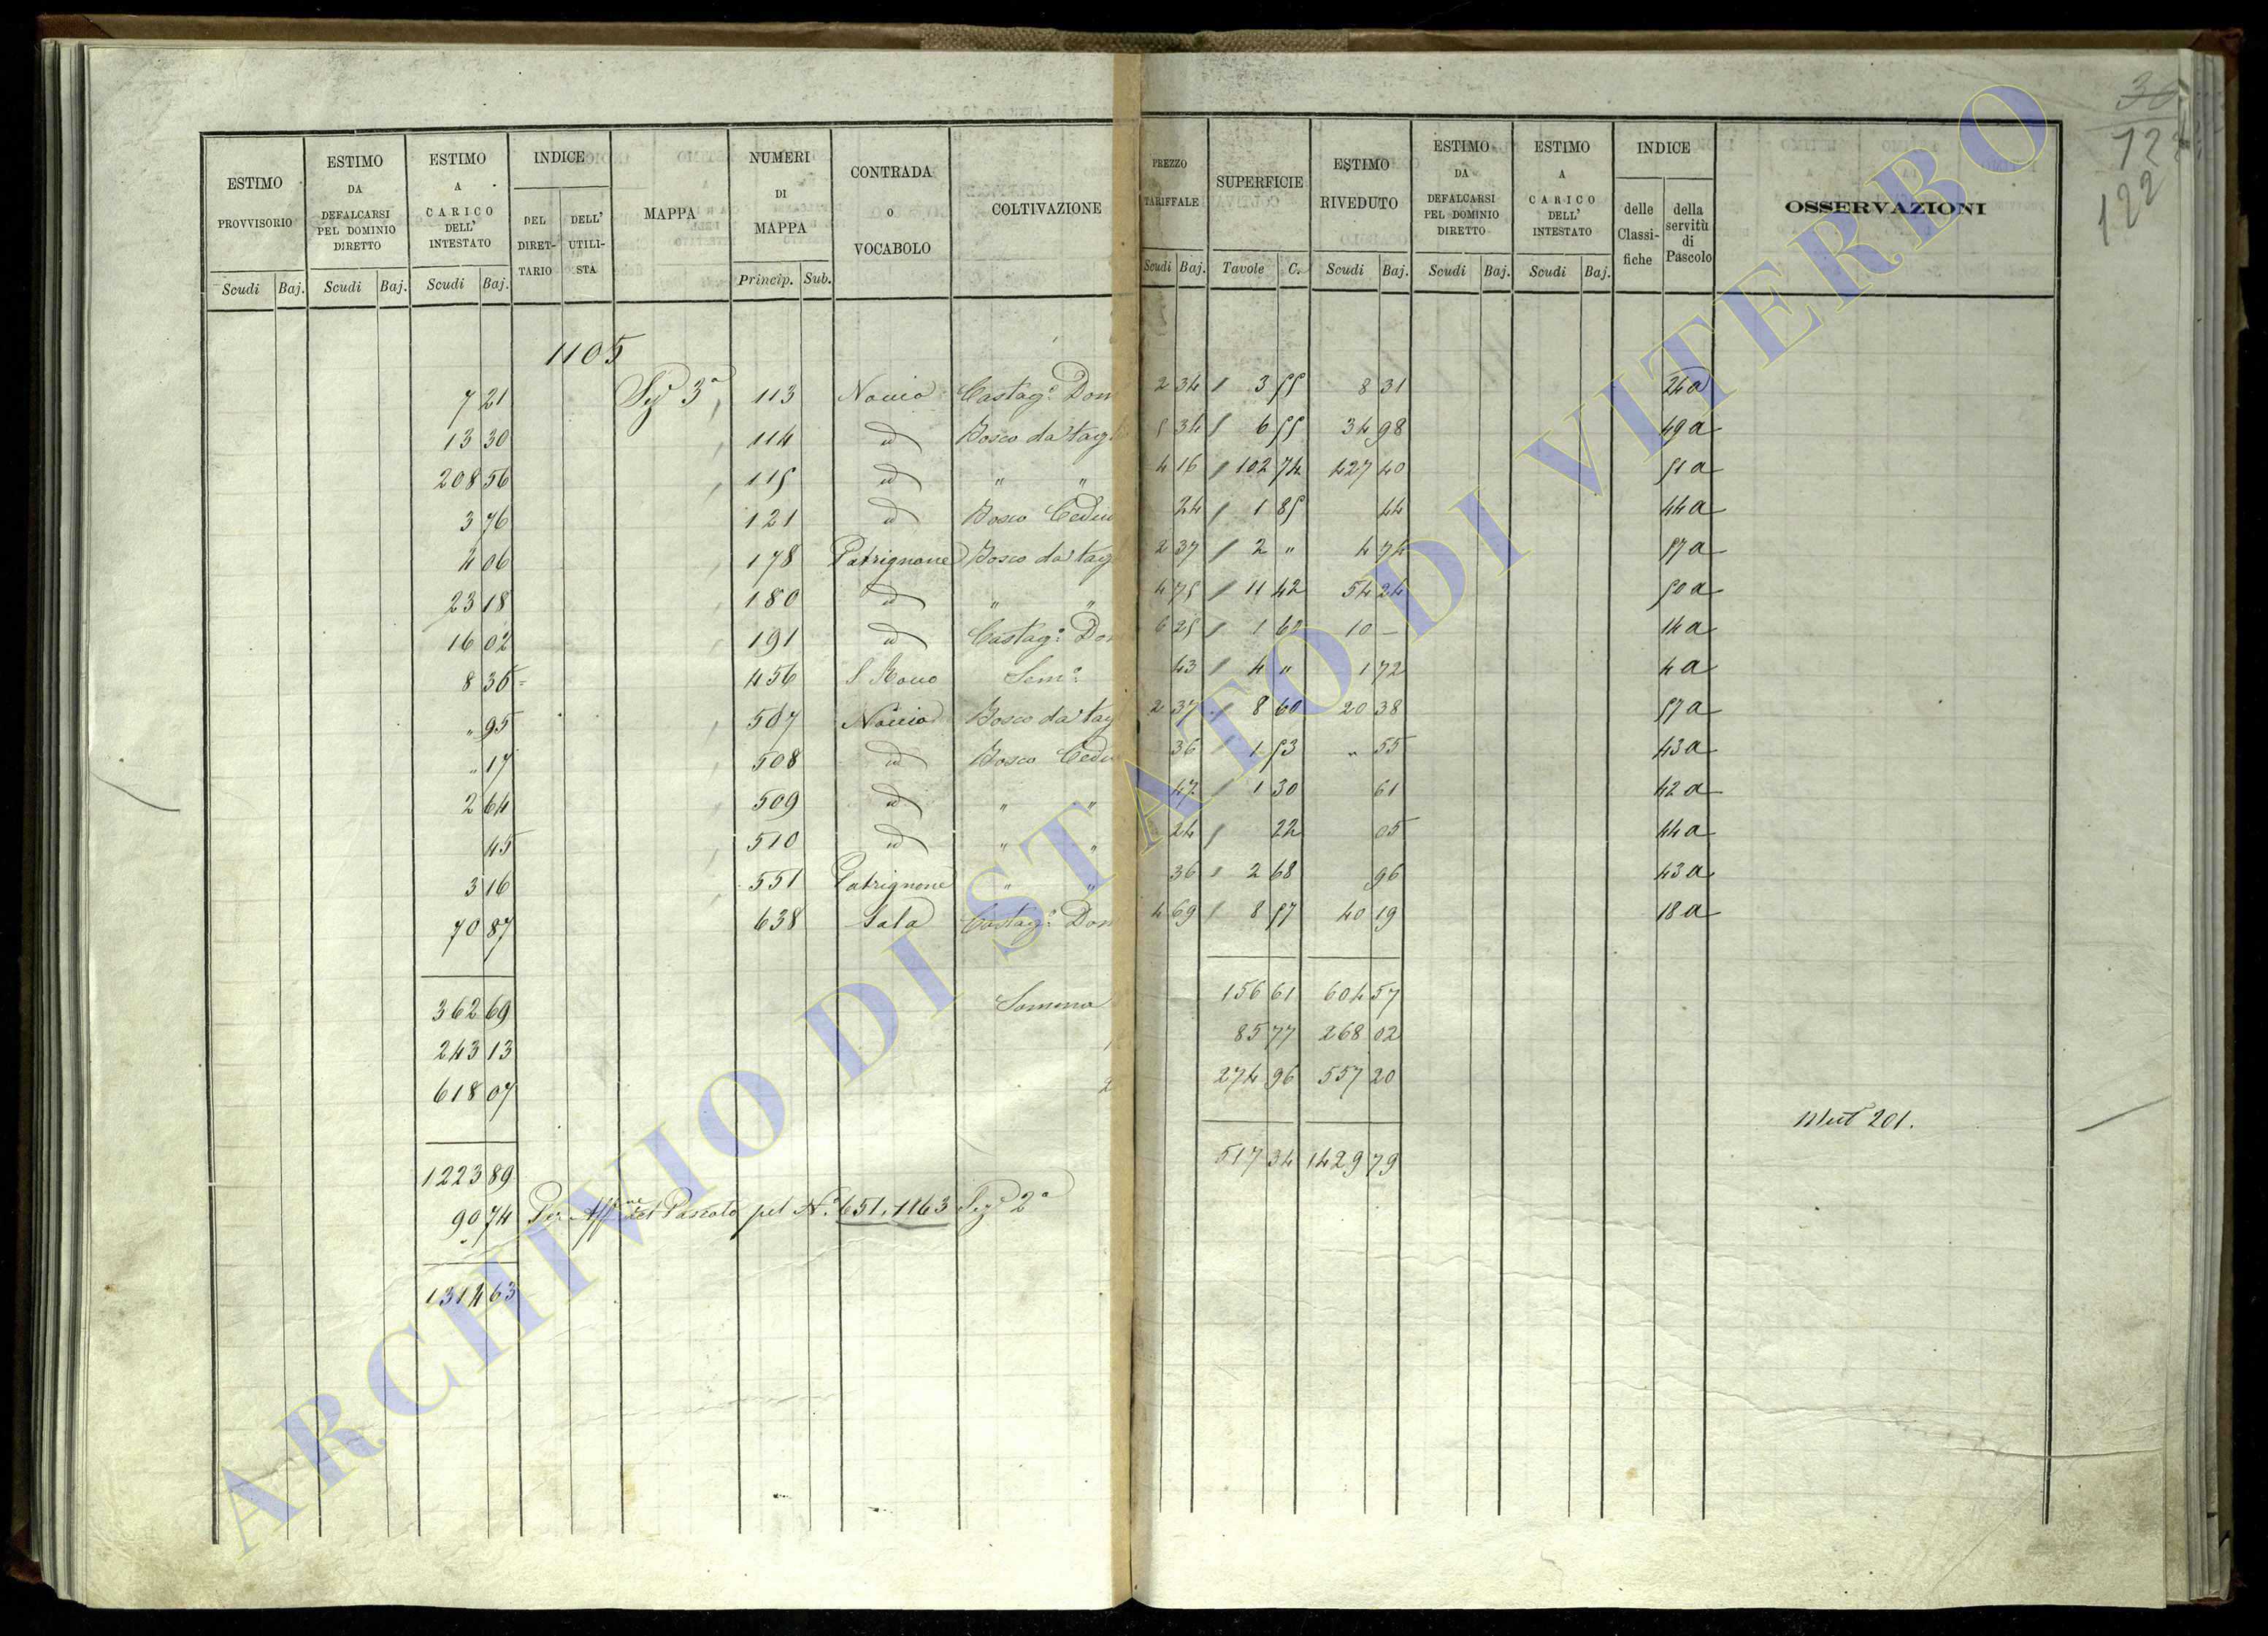 30
122
122
ESTIMO PROVVISORIO | ESTIMO DA DEFALCARSI PEL DOMINIO DIRETTO | ESTIMO A CARICO DELL' INTESTATO | INDICE | MAPPA | NUMERI DI MAPPA | CONTRADA O VOCABOLO | COLTIVAZIONE | PREZZO TARIFFALE | SUPERFICIE | ESTIMO RIVEDUTO | ESTIMO DA DEFALCARSI PEL DOMINIO DIRETTO | ESTIMO A CARICO DELL' INTESTATO | INDICE | OSSERVAZIONI
DEL DIRETTARIO | DELL' UTILISTA | delle Classifiche | della servitù di Pascolo
Scudi | Baj. | Scudi | Baj. | Scudi | Baj. | Princip. | Sub. | Scudi | Baj. | Tavole | C. | Scudi | Baj. | Scudi | Baj. | Scudi | Baj.
1105
7 21 | Sez 3a | 113 | Noccio | Castag.o Dom | 2 34 | 3 55 | 8 31 | 26a
13 30 | 114 | id | Bosco da tagl | 5 34 | 6 55 | 34 98 | 49a
208 56 | 115 | id | " " | 4 16 | 102 74 | 427 40 | 51a
3 76 | 121 | id | Bosco Ceduo | 24 | 1 85 | 44 | 44a
4 06 | 178 | Patrignone | Bosco da tag | 2 37 | 2 " | 4 74 | 57a
23 18 | 180 | id | " " | 4 75 | 11 42 | 54 24 | 50a
16 02 | 191 | id | Castag.o Dom | 6 25 | 1 62 | 10 — | 14a
8 36 | 456 | S Rocco | Sem.o | 43 | 4 " | 1 72 | 4a
" 95 | 507 | Noccio | Bosco da tag | 2 37 | 8 60 | 20 38 | 57a
" 17 | 508 | id | Bosco Cedu | 36 | 1 53 | " 55 | 43a
2 64 | 509 | id | " " | 47 | 1 30 | 61 | 42a
45 | 510 | id | " " | 24 | 22 | 05 | 44a
3 16 | 551 | Patrignone | " " | 36 | 2 68 | 96 | 43a
70 87 | 638 | Sala | Castag.o Dom | 4 69 | 8 57 | 40 19 | 18a
362 69 | Somma | 156 61 | 604 57
243 13 | 1 | 85 77 | 268 02
618 07 | 2 | 274 96 | 557 20
Mut 201.
1223 89 | 517 34 | 1429 79
90 74 Per Aff.ne del Pascolo pel N.o 651, 1163 Sez 2a
1314 63
ARCHIVIO DI STATO DI VITERBO